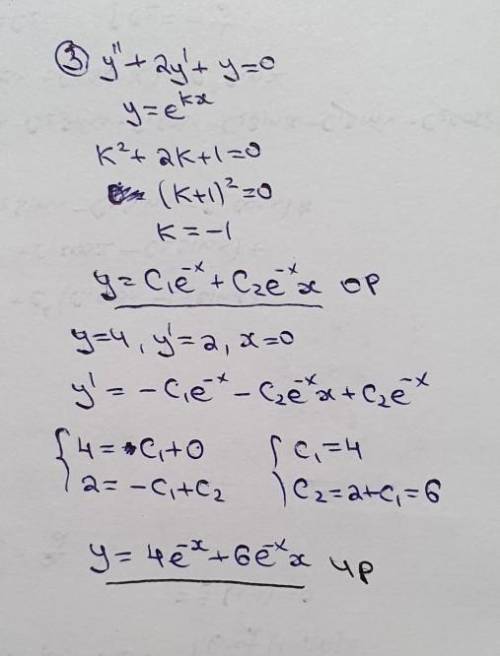 ③ y'' + 2y' + y = 0
y = e^{kx}
k² + 2k + 1 = 0
(k+1)² = 0
k = -1
y = C₁e^{-x} + C₂e^{-x}x ор
y = 4, y' = 2, x = 0
y' = -C₁e^{-x} - C₂e^{-x}x + C₂e^{-x}
{ 4 = C₁ + 0 { C₁ = 4
2 = -C₁ + C₂ C₂ = 2 + C₁ = 6
y = 4e^{-x} + 6e^{-x}x чр